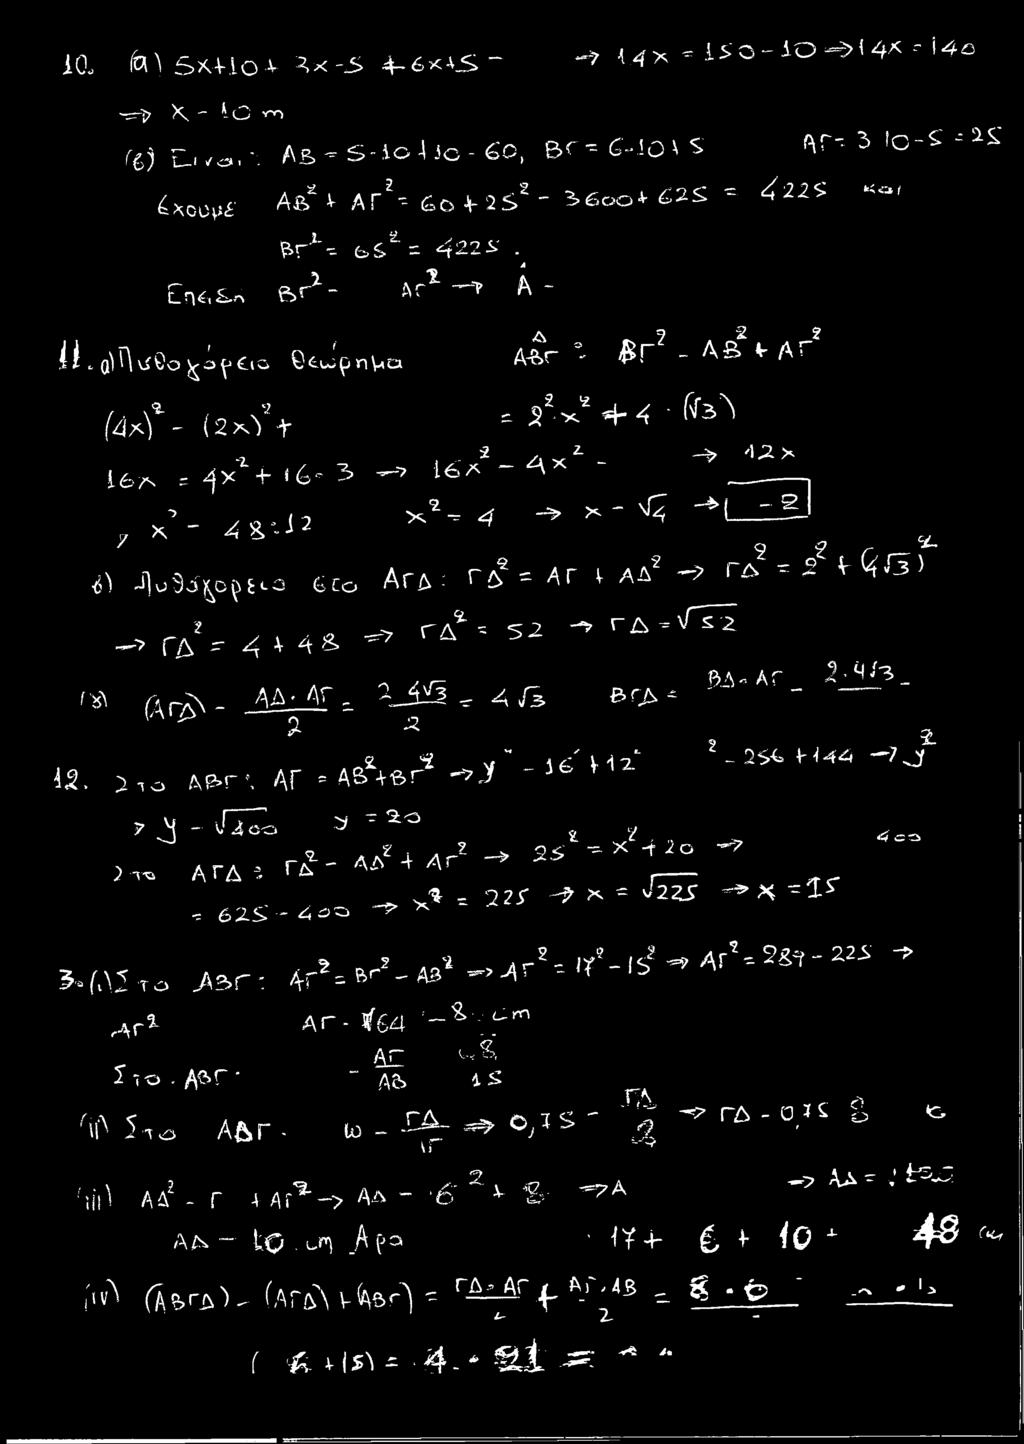 10. (α) 5x+10+ 3x-5 +6x+5 - → 14x = 150-10 ⇒ 14x = 140
⇒ x - 10 m
(β) Είναι: AB = 5·10+10 - 60, ΒΓ = 6·10+5 ΑΓ = 3 10-5 = 25
έχουμε ΑΒ² + ΑΓ² = 60 + 25² - 3600 + 625 = 4225 και
ΒΓ² = 65² = 4225.
Επειδη ΒΓ² - ΑΓ² → Â -
11. α) Πυθαγόρειο Θεώρημα ΑΒΓ : ΒΓ² - ΑΒ² + ΑΓ²
(4x)² - (2x)² + = 2²·x² + 4 · (√3)
16x = 4x² + 16·3 → 16x² - 4x² - → 12x
x² - 48:12 x² = 4 → x - √4 → - 2
β) Πυθαγορειο στο ΑΓΔ: ΓΔ² = ΑΓ + ΑΔ² → ΓΔ² = 2² + (4√3)²
→ ΓΔ² = 4 + 48 ⇒ ΓΔ² = 52 → ΓΔ = √52
(γ) (ΑΓΔ) - ΑΔ·ΑΓ/2 = 2 4√3/2 = 4√3 ΒΓΔ = ΒΔ·ΑΓ - 2·4√3 -
12. Στο ΑΒΓ: ΑΓ = ΑΒ²+ΒΓ² → y - 16 + 12² ² - 256 + 144 → y²
y - √400 y = 20
Στο ΑΓΔ: ΓΔ² - ΑΔ² + ΑΓ² → 25² = x² + 20 → 400
= 625 - 400 → x² = 225 → x = √225 → x = 15
3. (i) Στο ΑΒΓ: ΑΓ² = ΒΓ² - ΑΒ² ⇒ ΑΓ² = 17² - 15² ⇒ ΑΓ² = 289 - 225 →
ΑΓ² ΑΓ - √64 - 8 cm
Στο ΑΒΓ - ΑΓ/ΑΒ 8/15
(ii) Στο ΑΔΓ. ω - ΓΔ ⇒ 0,75 - ΓΔ → ΓΔ - 0,75 8 6
(iii) ΑΔ² - Γ + ΑΓ² → ΑΔ - 6² + 8 ⇒ Α → ΑΔ =
ΑΔ - 10 cm Αρα 17 + 6 + 10 + 48 cm
(iv) (ΑΒΓΔ) - (ΑΓΔ) + (ΑΒΓ) = ΓΔ·ΑΓ + ΑΓ·ΑΒ/2 = 8·6
( 6 + 15) = 4 · 21 =